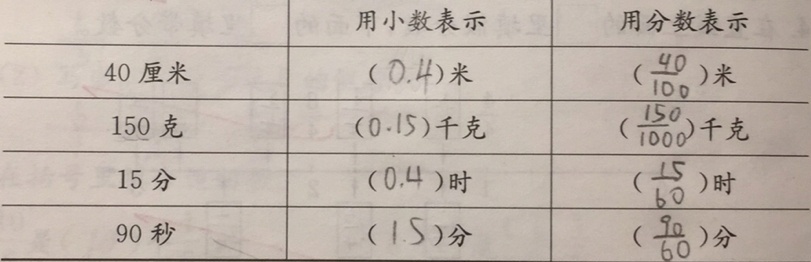 用小数表示 用分数表示
40 厘米 (0.4)米 (40/100)米
150 克 (0.15)千克 (150/1000)千克
15 分 (0.4)时 (15/60)时
90 秒 (1.5)分 (90/60)分